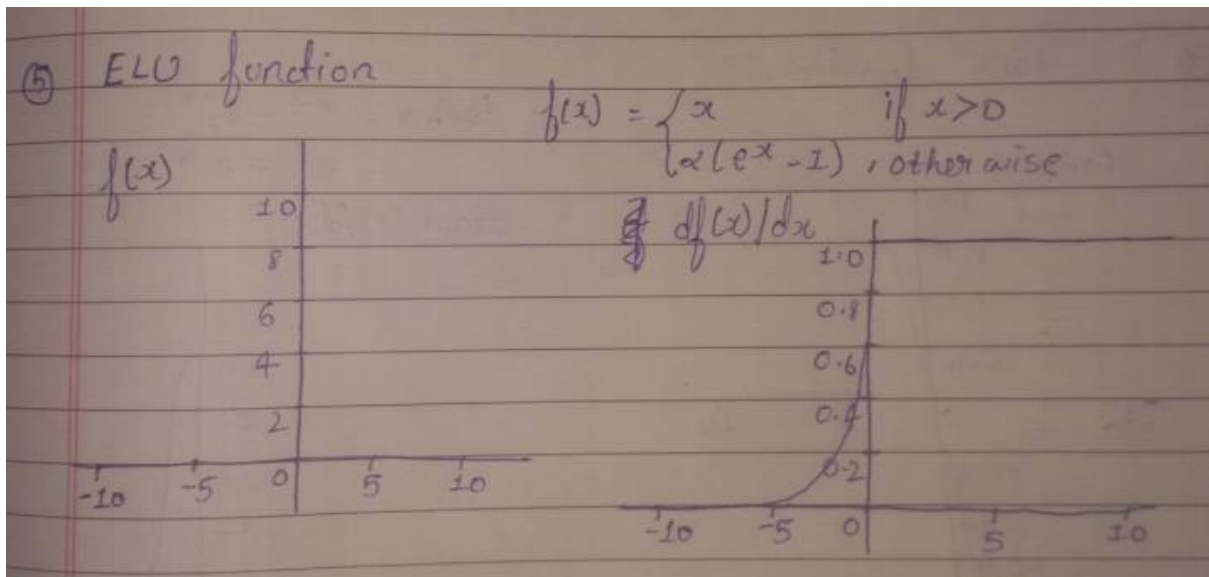 ⑤ ELU function
f(x) = { x if x>0
α(e^x - 1), otherwise
f(x)
10
8
6
4
2
-10 -5 0 5 10
df(x)/dx
1.0
0.8
0.6
0.4
0.2
-10 -5 0 5 10